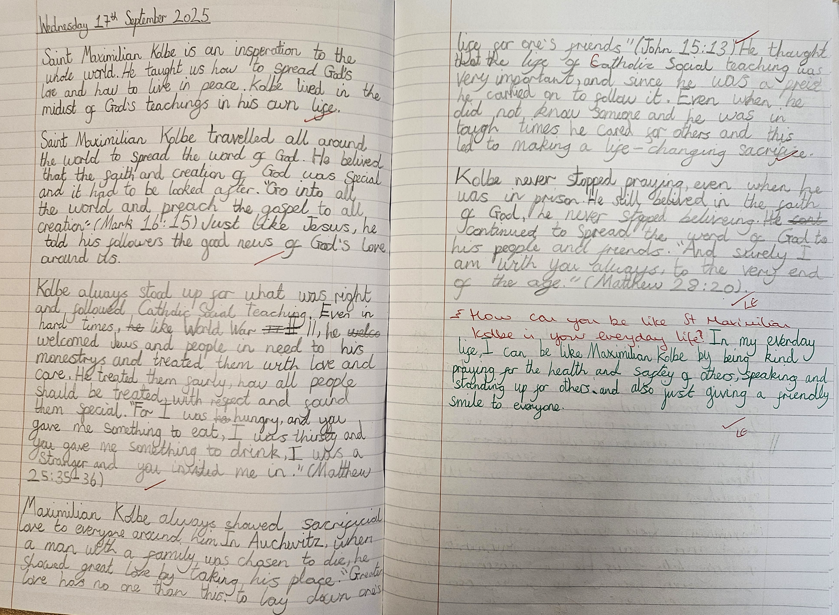 Wednesday 17th September 2025
Saint Maximilian Kolbe is an insperation to the
whole world. He taught us how to spread God's
love and how to live in peace. Kolbe lived in the
midist of God's teachings in his own life.
Saint Maximilian Kolbe travelled all around
the world to spread the word of God. He belived
that the faith and creation of God was special
and it had to be looked after. "Go into all
the world and preach the gospel to all
creation" (Mark 16:15) Just like Jesus, he
told his followers the good news of God's love
around us.
Kolbe always stood up for what was right
and followed Catholic Social Teaching. Even in
hard times, he like World War II II, he welco
welcomed Jews and people in need to his
monestrys and treated them with love and
care. He treated them fairly, how all people
should be treated, with respect and found
them special. "For I was hungry, and you
gave me something to eat, I was thirsty and
you gave me something to drink, I was a
Stranger and you invited me in." (Matthew
25:35-36)
Maximilian Kolbe always showed sacrificial
love to everyone around him. In Auchwitz, when
a man with a family was chosen to die, he
showed great love by taking his place. "Greater
love has no one than this: to lay down one's
life for one's friends" (John 15:13) He thought
that the life of Catholic Social teaching was
very important, and since he was a preist
he carried on to follow it. Even when he
did not know someone and he was in
tough times he cared for others and this
led to making a life-changing sacrifice.
Kolbe never stopped praying, even when he
was in prison. He still belived in the faith
of God, he never stopped beliveing. He cont
continued to spread the word of God to
his people and friends. "And surely I
am with you always, to the very end
of the age." (Matthew 28:20).
LE
How can you be like St Maximilian
Kolbe in your everyday life? In my everday
life, I can be like Maximilian Kolbe by being kind
praying for the health and saftey of others, speaking and
standing up for others, and also just giving a friendly
smile to everyone.
LE